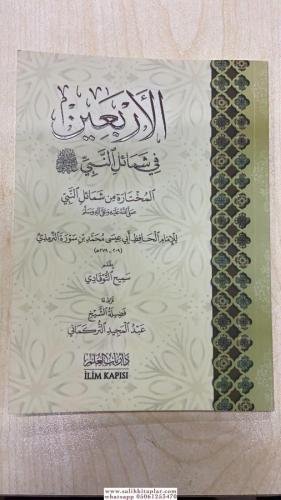 الأربعين
في شمائل النبي ﷺ
المختارة من شمائل النبي
صلى الله عليه وآله وسلم
للإمام الحافظ أبي عيسى محمد بن سورة الترمذي
(٢٠٩ - ٢٧٩هـ)
بقلم
سميح التوقادي
قرظ لها
فضيلة الشيخ
عبد المجيد التركماني
دار باب العلم
İLİM KAPISI
www.salihkitaplar.com
whatsapp 05061253470